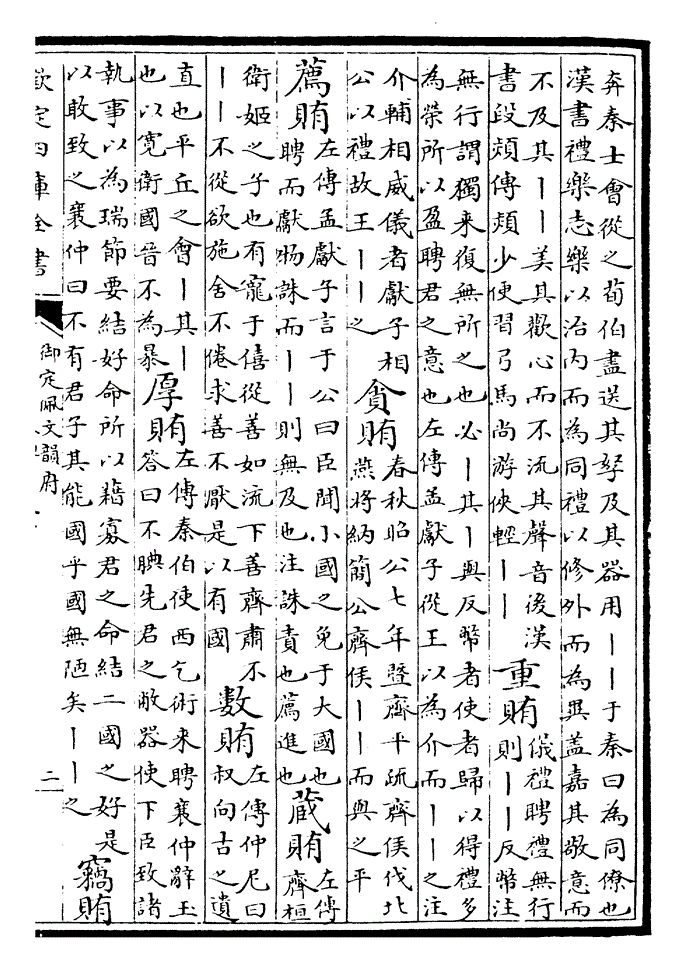 奔秦士會從之荀伯盡送其孥及其器用丨丨于秦曰為同僚也
漢書禮樂志樂以治内而為同禮以修外而為異盖嘉其敬意而
不及其丨丨美其歡心而不流其聲音後漢
書段熲傳熲少便習弓馬尚游俠輕丨丨
重賄
儀禮聘禮無行
則丨丨反幣注
無行謂獨来復無所之也必丨其丨與反幣者使者歸以得禮多
為榮所以盈聘君之意也左傳孟獻子從王以為介而丨丨之注
介輔相威儀者獻子相
公以禮故王丨丨之
貪賄
春秋昭公七年暨齊平疏齊侯伐北
燕將納簡公齊侯丨丨而與之平
薦賄
左傳孟獻子言于公曰臣聞小國之免于大國也
聘而獻物誅而丨丨則無及也注誅責也薦進也
蔵賄
左傳
齊桓
衛姬之子也有寵于僖從善如流下善齊肅不
丨丨不從欲施舍不倦求善不厭是以有國
數賄
左傳仲尼曰
叔向古之遺
直也平丘之會丨其丨
也以寛衛國晉不為暴
厚賄
左傳秦伯使西乞術来聘襄仲辭玉
答曰不腆先君之敝器使下臣致諸
執事以為瑞節要結好命所以藉寡君之命結二國之好是
以敢致之襄仲曰不有君子其能國乎國無陋矣丨丨之
竊賄
欽定四庫全書
御定佩文韻府
二